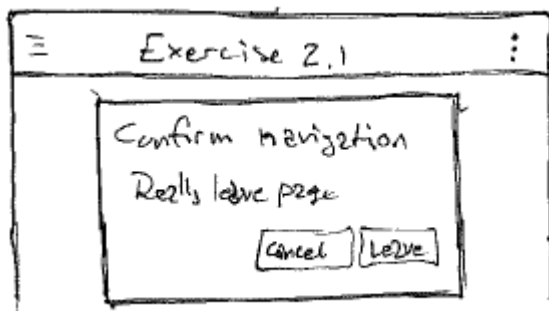 Exercise 2.1
Confirm navigation
Really leave page
Cancel Leave